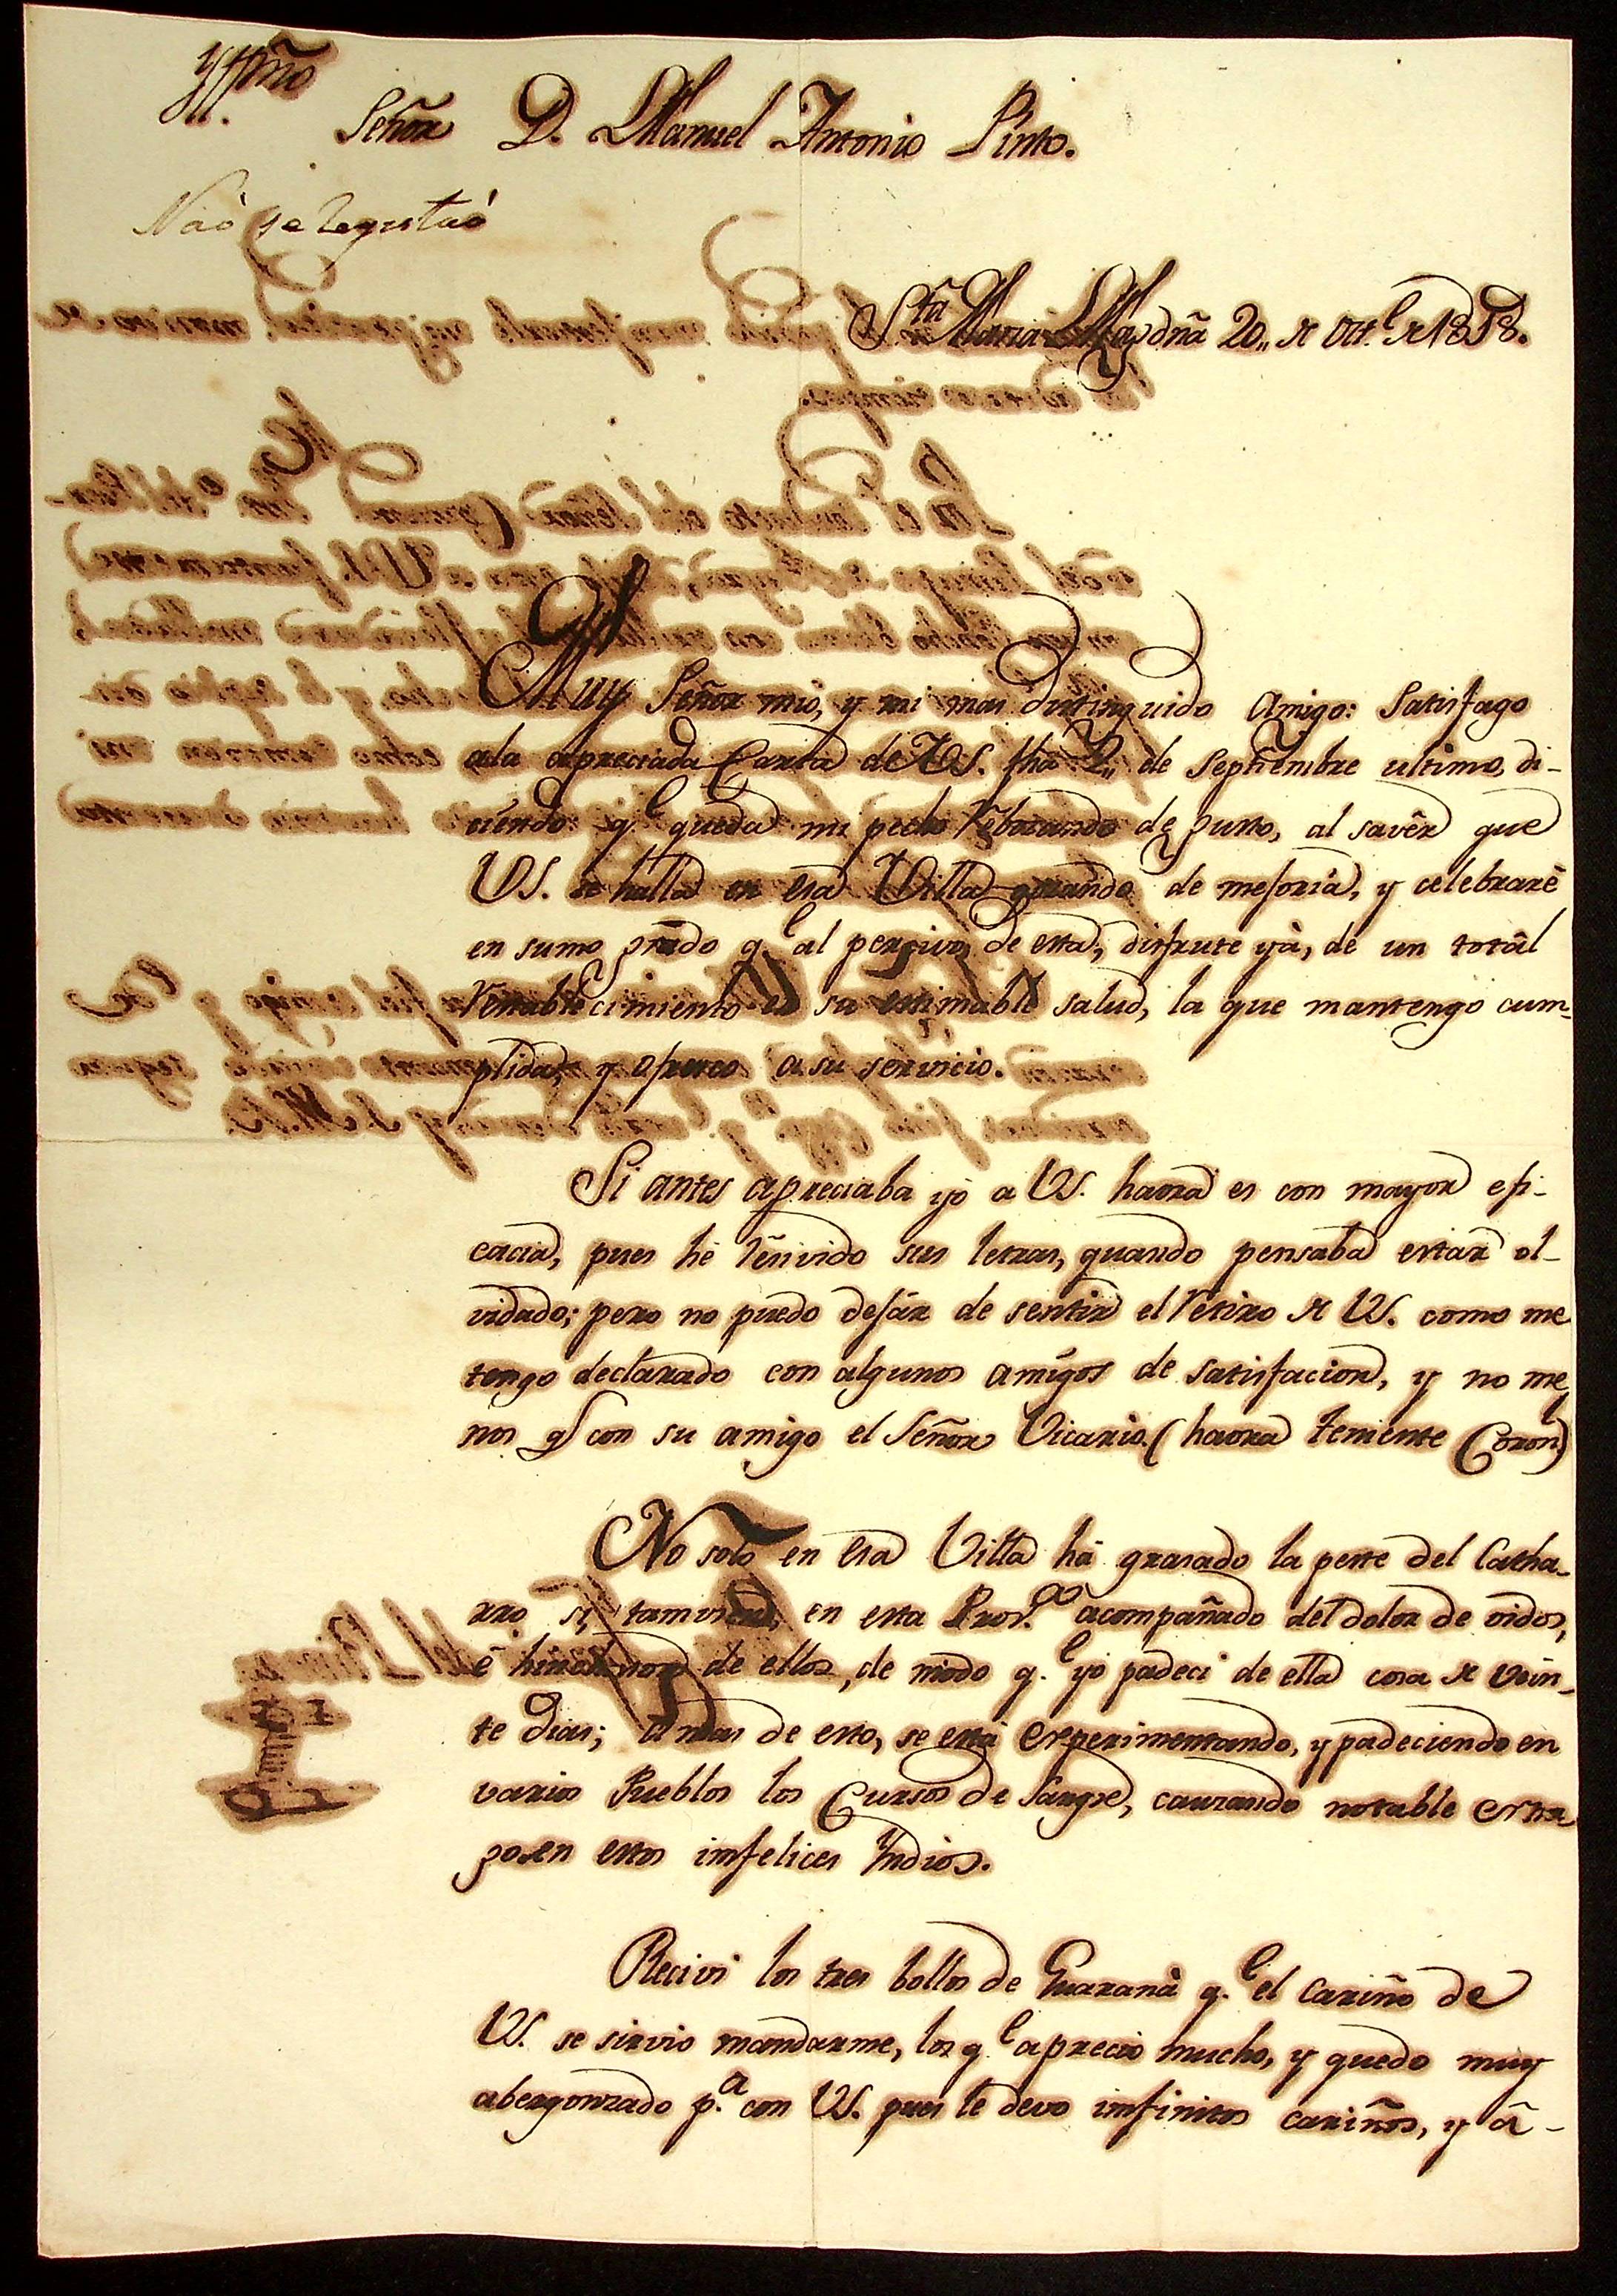 Yllmõ
Señor D. Manuel Antonio Pinto.
Naõ se Registaó
Stã Maria Magdñã 20,, de Oct.e de 1818.
Muy Señor mio, y mi mas distinguido Amigo: Satisfago
ala apreciada Carta de VS. fhã 2,, de Septiembre ultimo, di-
ciendo: q.e queda mi pecho Rebozando de gusto, al savêr que
VS. se halla en esa Villa gozando de mejoria, y celebrarè
en sumo grãdo q.e al percivo de esta, disfrute yà, de un totâl
Restablecimiento en su estimable salud, la que mantengo cum-
plida, y ofresco a su servicio.
Si antes apreciaba yo a VS. haora es con mayor efi-
cacia, pues hè Resivido sus letras, quando pensaba estar ol-
vidado; pero no puedo dejár de sentir el Retiro de VS. como me
tengo declarado con algunos amigos de satisfacion, y no me
nos q.e con su amigo el Señor Vicario. (haora teniente Coron.l)
No solo en esa Villa hà grasado la peste del Catha-
rro si, tamvien, en esta Prov.a acompañado del dolor de oidos,
è hinchazon de ellos, de modo q.e yo padeci de ella cosa de vein-
te dias; a mas de esto, se està experimentando, y padeciendo en
varios Pueblos los Cursos de Sangre, causando notable estra
gos en estos imfelices Yndios.
Recivi los tres bollos de Guaranà q.e el cariño de
VS. se sirvio mandarme, los q.e aprecio mucho, y quedo muy
abergonzado p.a con VS. pues le devo imfinitos cariños, y â-